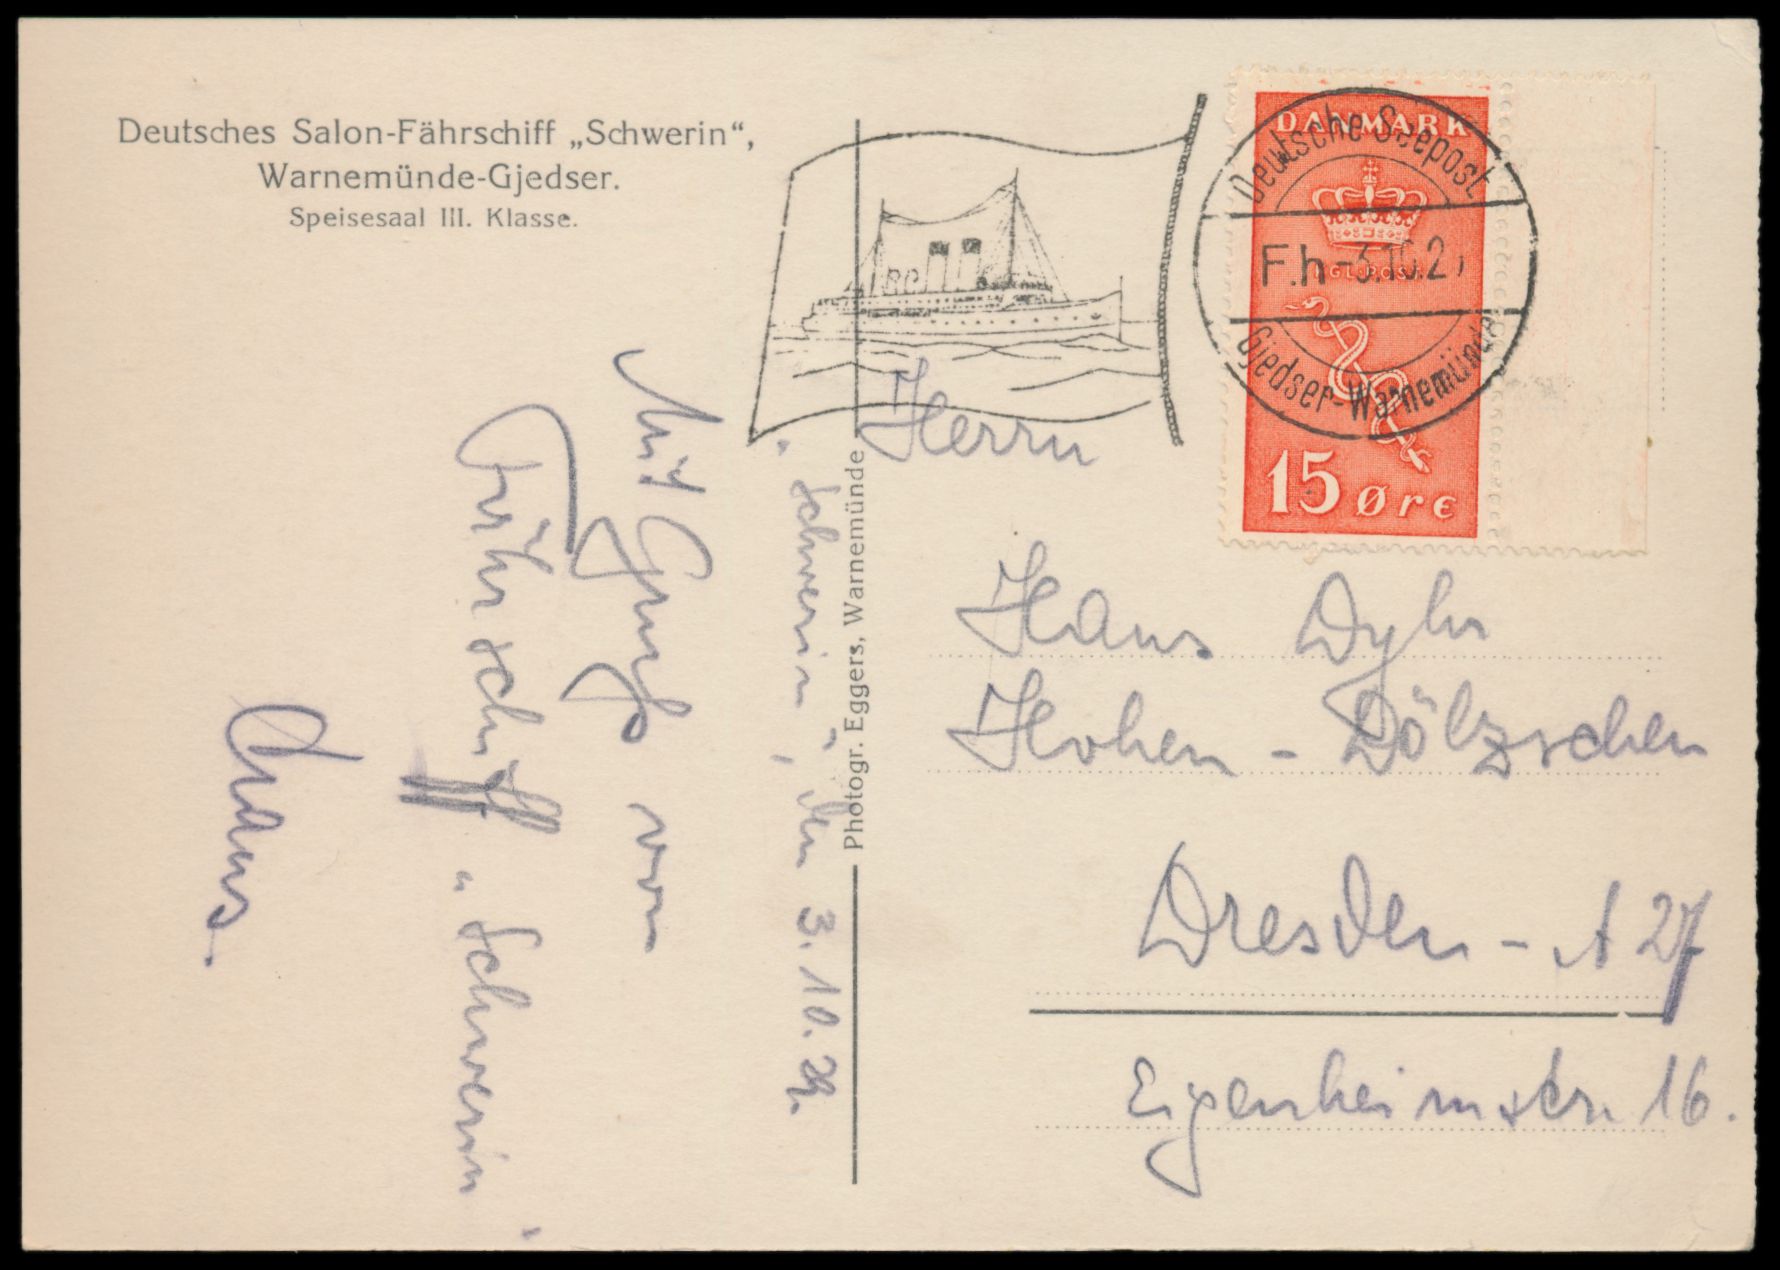 Deutsches Salon-Fährschiff „Schwerin“,
Warnemünde-Gjedser.
Speisesaal III. Klasse.
DANMARK
KGL:POST
15 øre
Deutsche Seepost
F.h -3.10.2
Gjedser-Warnemünde
Photogr. Eggers, Warnemünde
„Schwerin“, den 3.10.29.
Mit Gruß von
Fährschiff „Schwerin“
Hans.
Herrn
Hans Dyhr
Hohen-Dölzschen
Dresden-A 27
Eigenheimstr. 16.